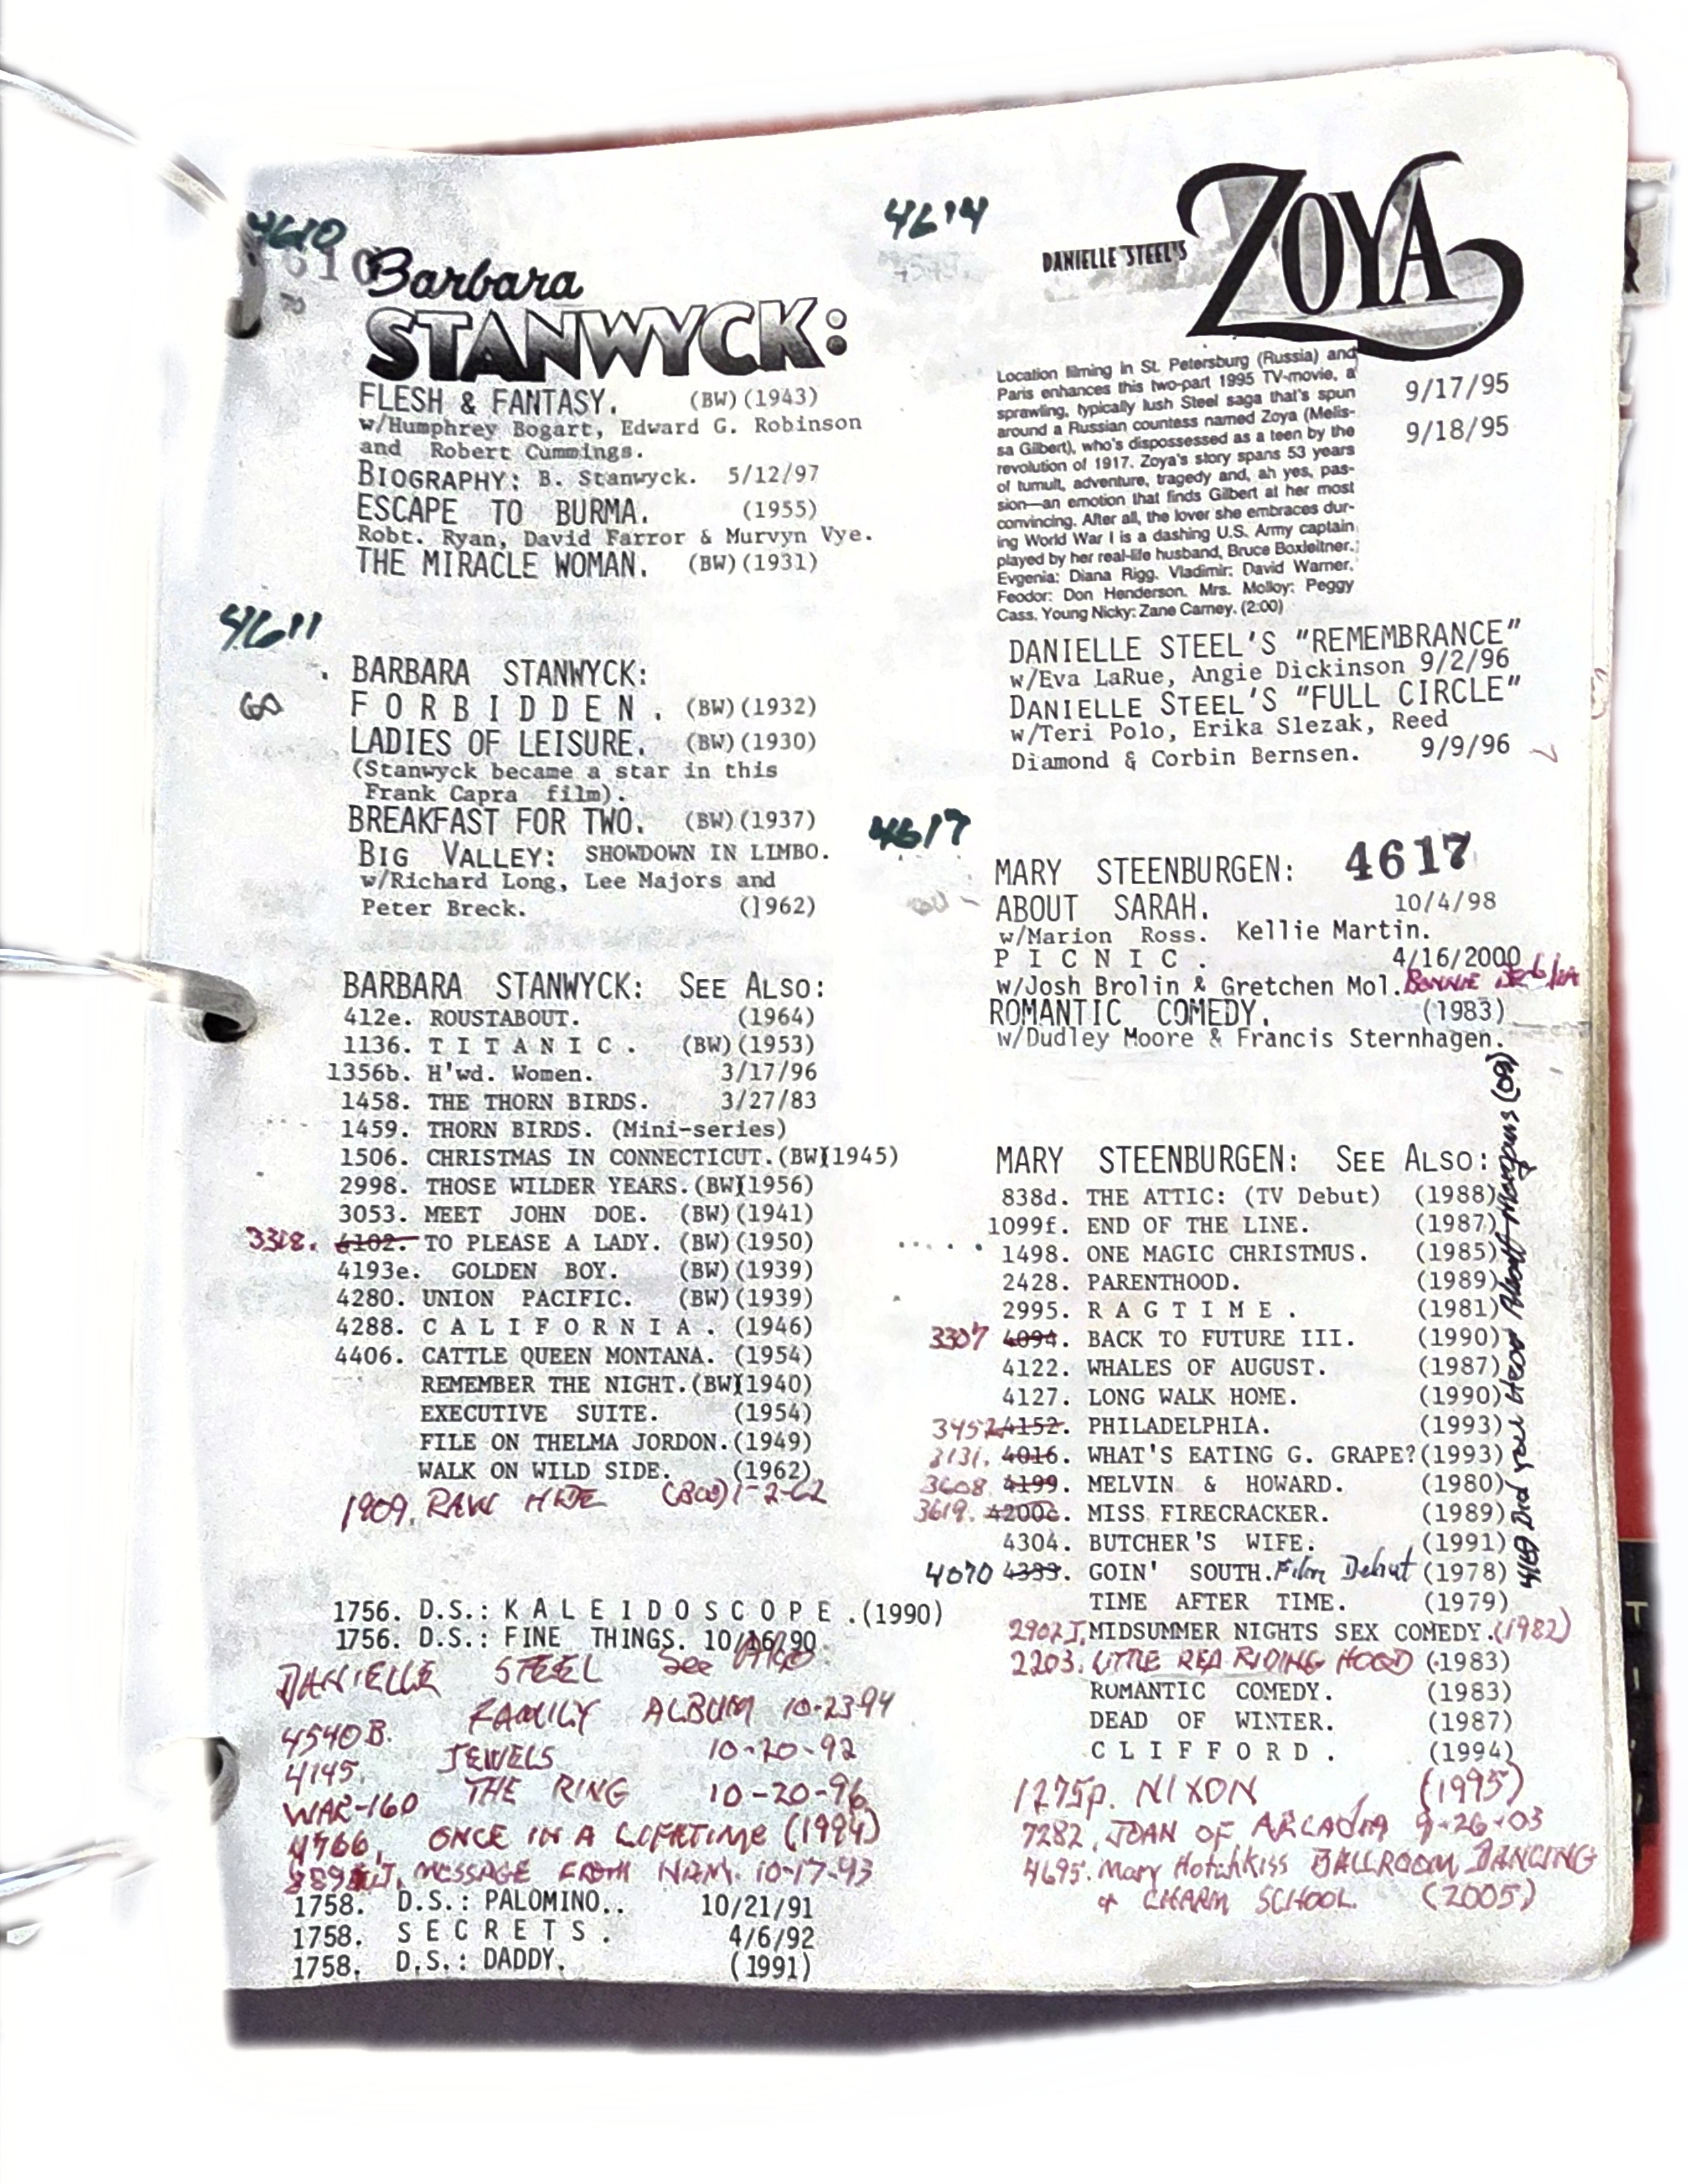 4610
Barbara
STANWYCK:
FLESH & FANTASY. (BW)(1943)
w/Humphrey Bogart, Edward G. Robinson
and Robert Cummings.
BIOGRAPHY: B. Stanwyck. 5/12/97
ESCAPE TO BURMA. (1955)
Robt. Ryan, David Farror & Murvyn Vye.
THE MIRACLE WOMAN. (BW)(1931)
4611
BARBARA STANWYCK:
F O R B I D D E N . (BW)(1932)
LADIES OF LEISURE. (BW)(1930)
(Stanwyck became a star in this
Frank Capra film).
BREAKFAST FOR TWO. (BW)(1937)
BIG VALLEY: SHOWDOWN IN LIMBO.
w/Richard Long, Lee Majors and
Peter Breck. (1962)
BARBARA STANWYCK: SEE ALSO:
412e. ROUSTABOUT. (1964)
1136. T I T A N I C . (BW)(1953)
1356b. H'wd. Women. 3/17/96
1458. THE THORN BIRDS. 3/27/83
1459. THORN BIRDS. (Mini-series)
1506. CHRISTMAS IN CONNECTICUT.(BW)(1945)
2998. THOSE WILDER YEARS.(BW)(1956)
3053. MEET JOHN DOE. (BW)(1941)
3328. 4102. TO PLEASE A LADY. (BW)(1950)
4193e. GOLDEN BOY. (BW)(1939)
4280. UNION PACIFIC. (BW)(1939)
4288. C A L I F O R N I A . (1946)
4406. CATTLE QUEEN MONTANA. (1954)
REMEMBER THE NIGHT.(BW)(1940)
EXECUTIVE SUITE. (1954)
FILE ON THELMA JORDON.(1949)
WALK ON WILD SIDE. (1962)
1909. RAW HIDE (BW) 1-2-62
1756. D.S.: K A L E I D O S C O P E .(1990)
1756. D.S.: FINE THINGS. 10/16/90.
DANIELLE STEEL See Also
FAMILY ALBUM 10-23-94
4540B. JEWELS 10-20-92
4145. THE RING 10-20-96
WAR-160
4766, ONCE IN A LIFETIME (1994)
MESSAGE FROM NAM. 10-17-93
1758. D.S.: PALOMINO.. 10/21/91
1758. S E C R E T S . 4/6/92
1758. D.S.: DADDY. (1991)
4614
DANIELLE STEEL'S ZOYA
Location filming in St. Petersburg (Russia) and
Paris enhances this two-part 1995 TV-movie, a
sprawling, typically lush Steel saga that's spun
around a Russian countess named Zoya (Melis-
sa Gilbert), who's dispossessed as a teen by the
revolution of 1917. Zoya's story spans 53 years
of tumult, adventure, tragedy and, ah yes, pas-
sion—an emotion that finds Gilbert at her most
convincing. After all, the lover she embraces dur-
ing World War I is a dashing U.S. Army captain
played by her real-life husband, Bruce Boxleitner.
Evgenia: Diana Rigg. Vladimir: David Warner.
Feodor: Don Henderson. Mrs. Molloy: Peggy
Cass. Young Nicky: Zane Carney. (2:00)
9/17/95
9/18/95
DANIELLE STEEL'S "REMEMBRANCE"
w/Eva LaRue, Angie Dickinson 9/2/96
DANIELLE STEEL'S "FULL CIRCLE"
w/Teri Polo, Erika Slezak, Reed
Diamond & Corbin Bernsen. 9/9/96
4617
MARY STEENBURGEN: 4617
ABOUT SARAH. 10/4/98
w/Marion Ross. Kellie Martin.
P I C N I C . 4/16/2000
w/Josh Brolin & Gretchen Mol. BONNIE Bedelia
ROMANTIC COMEDY. (1983)
w/Dudley Moore & Francis Sternhagen.
MARY STEENBURGEN: SEE ALSO:
838d. THE ATTIC: (TV Debut) (1988)
1099f. END OF THE LINE. (1987)
1498. ONE MAGIC CHRISTMUS. (1985)
2428. PARENTHOOD. (1989)
2995. R A G T I M E . (1981)
3307 4094. BACK TO FUTURE III. (1990)
4122. WHALES OF AUGUST. (1987)
4127. LONG WALK HOME. (1990)
3452 4152. PHILADELPHIA. (1993)
3131. 4016. WHAT'S EATING G. GRAPE?(1993)
3608. 4199. MELVIN & HOWARD. (1980)
3619. 4200c. MISS FIRECRACKER. (1989)
4304. BUTCHER'S WIFE. (1991)
4070 4333. GOIN' SOUTH. Film Debut (1978)
TIME AFTER TIME. (1979)
2902J. MIDSUMMER NIGHTS SEX COMEDY. (1982)
2203. LITTLE RED RIDING HOOD (1983)
ROMANTIC COMEDY. (1983)
DEAD OF WINTER. (1987)
C L I F F O R D . (1994)
1275p. NIXON (1995)
7282. JOAN OF ARCADIA 9-26-03
4695. Mary Hotchkiss BALLROOM DANCING
& CHARM SCHOOL. (2005)
4160 Did you Hear About Morgans (09)